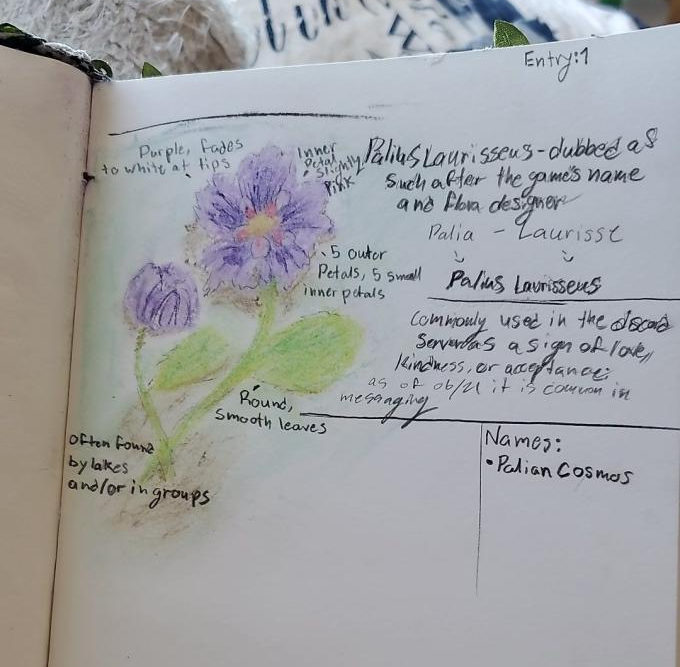 Entry:1
Purple, fades
to white at tips
Inner
Petal
slightly
Pink
Palius Laurisseus - dubbed as
such after the game's name
and flora designer
Palia - Laurisse
Palius Laurisseus
5 outer
Petals, 5 small
inner petals
commonly used in the discord
server as a sign of love,
kindness, or acceptance;
as of it is common in
messaging
Round,
smooth leaves
often found
by lakes
and/or in groups
Names:
•Palian Cosmos